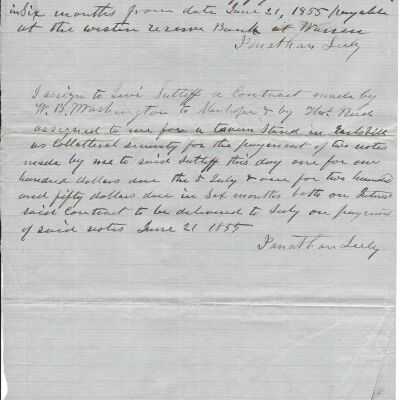 in Six months from date June 21, 1855 payable
at the western reserve Bank at Warren
Jonathan Seely
I assign to Levi Sutliff a Contract made by
W. B. Washington to Stanhope & by
assigned to me for a tavern Stand in
as Collatteral security for the payment of two notes
made by me to said Sutliff this day one for one
hundred dollars due the 5 July & one for two hundred
and fifty dollars due in Six months both on Interest
said Contract to be delivered to Seely on payment
of said notes June 21 1855
Jonathan Seely